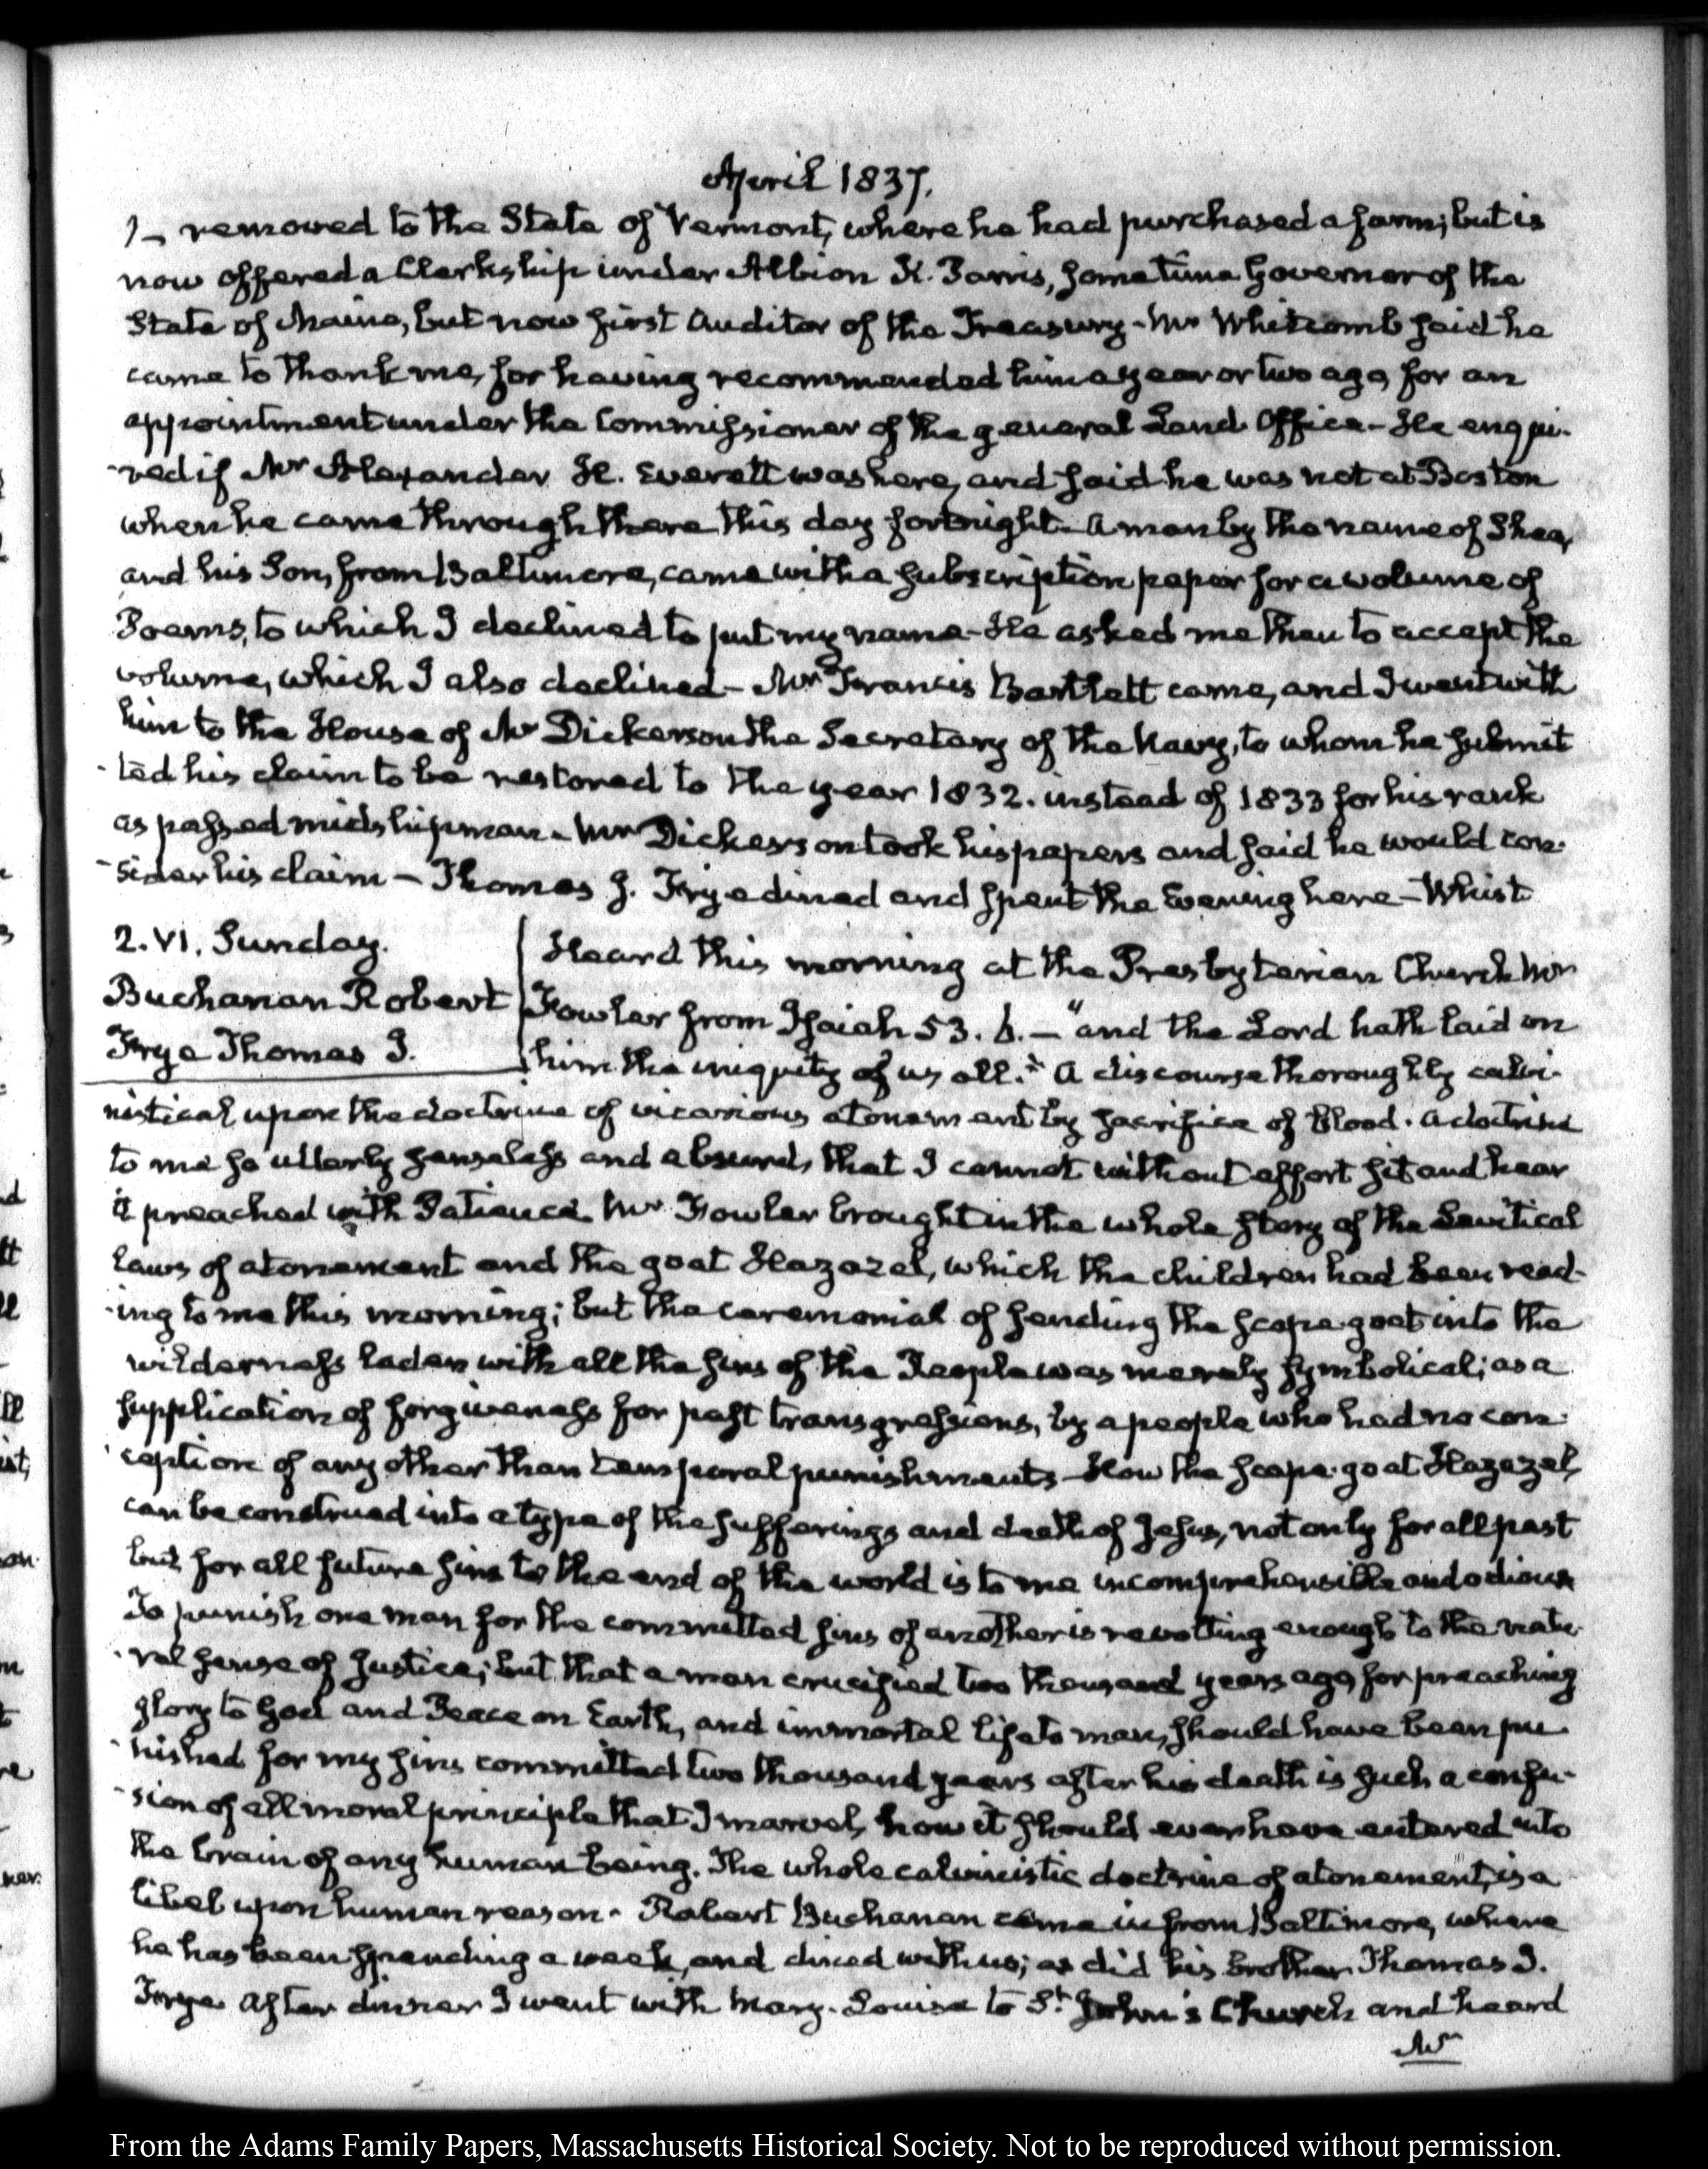 April 1837.
1_ removed to the State of Vermont, where he had purchased a farm; but is
now offered a Clerkship under Albion K. Parris, sometime Governor of the
State of Maine, but now first Auditor of the Treasury - Mr Whitcomb said he
came to thank me, for having recommended him a year or two ago, for an
appointment under the Commissioner of the general Land Office - He enqui-
-red if Mr Alexander H. Everett was here, and said he was not at Boston
when he came through there this day fortnight. A man by the name of Shea,
and his Son, from Baltimore, came with a subscription paper for a volume of
Poems, to which I declined to put my name - He asked me then to accept the
volume, which I also declined - Mr Francis Bartlett came, and I went with
him to the House of Mr Dickerson the Secretary of the Navy, to whom he submit
-ted his claim to be restored to the year 1832. instead of 1833 for his rank
as passed midshipman - Mr Dickerson took his papers and said he would con-
-sider his claim - Thomas J. Frye dined and spent the Evening here - Whist
2. VI. Sunday.
Buchanan Robert
Frye Thomas J.
Heard this morning at the Presbyterian Church Mr
Fowler from Isaiah 53. 6. - "and the Lord hath laid on
him the iniquity of us all." A discourse thoroughly calvi-
nistical upon the doctrine of vicarious atonement by sacrifice of Blood. A doctrine
to me so utterly senseless and absurd, that I cannot without effort sit and hear
it preached with Patience. Mr Fowler brought in the whole story of the Levitical
laws of atonement and the goat Hazazel, which the children had been read-
-ing to me this morning; but the ceremonial of sending the scape-goat into the
wilderness laden with all the sins of the People was merely symbolical; as a
supplication of forgiveness for past transgressions, by a people who had no con-
-ception of any other than temporal punishments - How the scape-goat Hazazel,
can be construed into a type of the sufferings and death of Jesus, not only for all past
but for all future sins to the end of the world is to me incomprehensible and odious
To punish one man for the committed sins of another is revolting enough to the natu-
-ral sense of Justice; but that a man crucified two thousand years ago, for preaching
glory to God and Peace on Earth, and immortal life to man, should have been pu-
-nished for my sins committed two thousand years after his death is such a confu-
-sion of all moral principle that I marvel, how it should ever have entered into
the brain of any human being. The whole calvinistic doctrine of atonement, is a
libel upon human reason - Robert Buchanan came in from Baltimore, where
he has been spending a week, and dined with us; as did his brother Thomas J.
Frye. After dinner I went with Mary-Louisa to St John's Church and heard
Mr
From the Adams Family Papers, Massachusetts Historical Society. Not to be reproduced without permission.